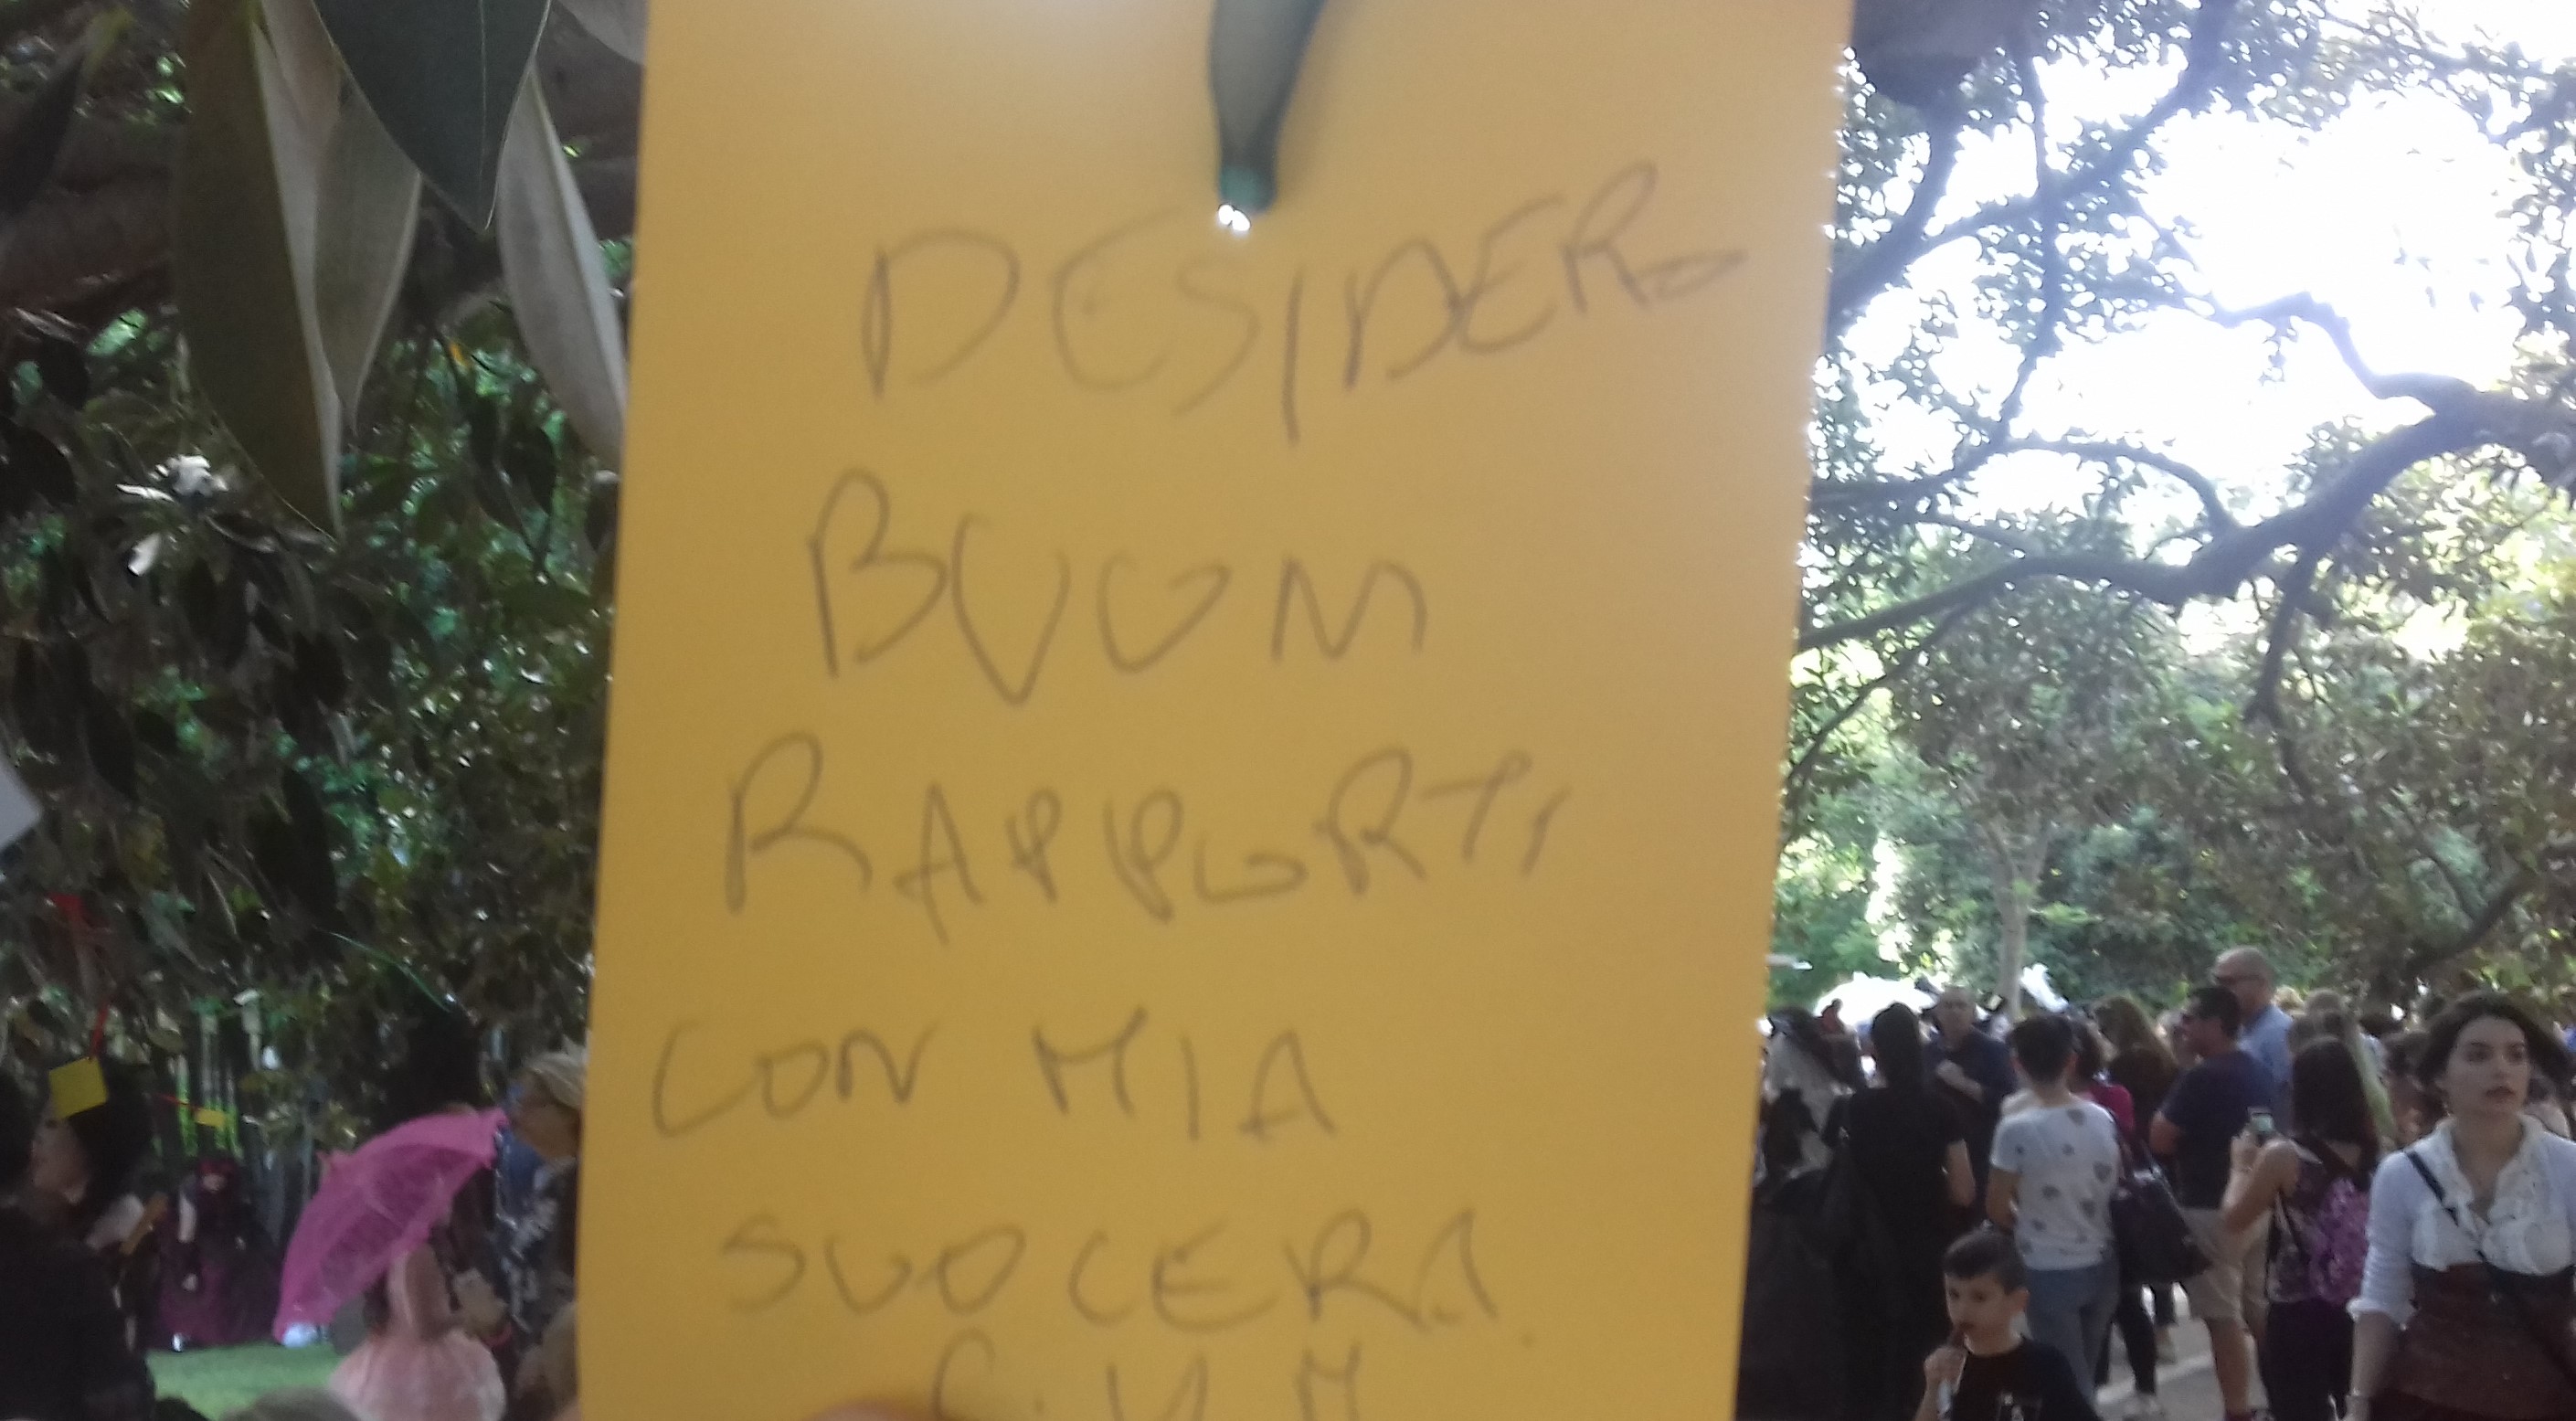 DESIDERO
BUON
RAPPORTI
CON MIA
SUOCERA.